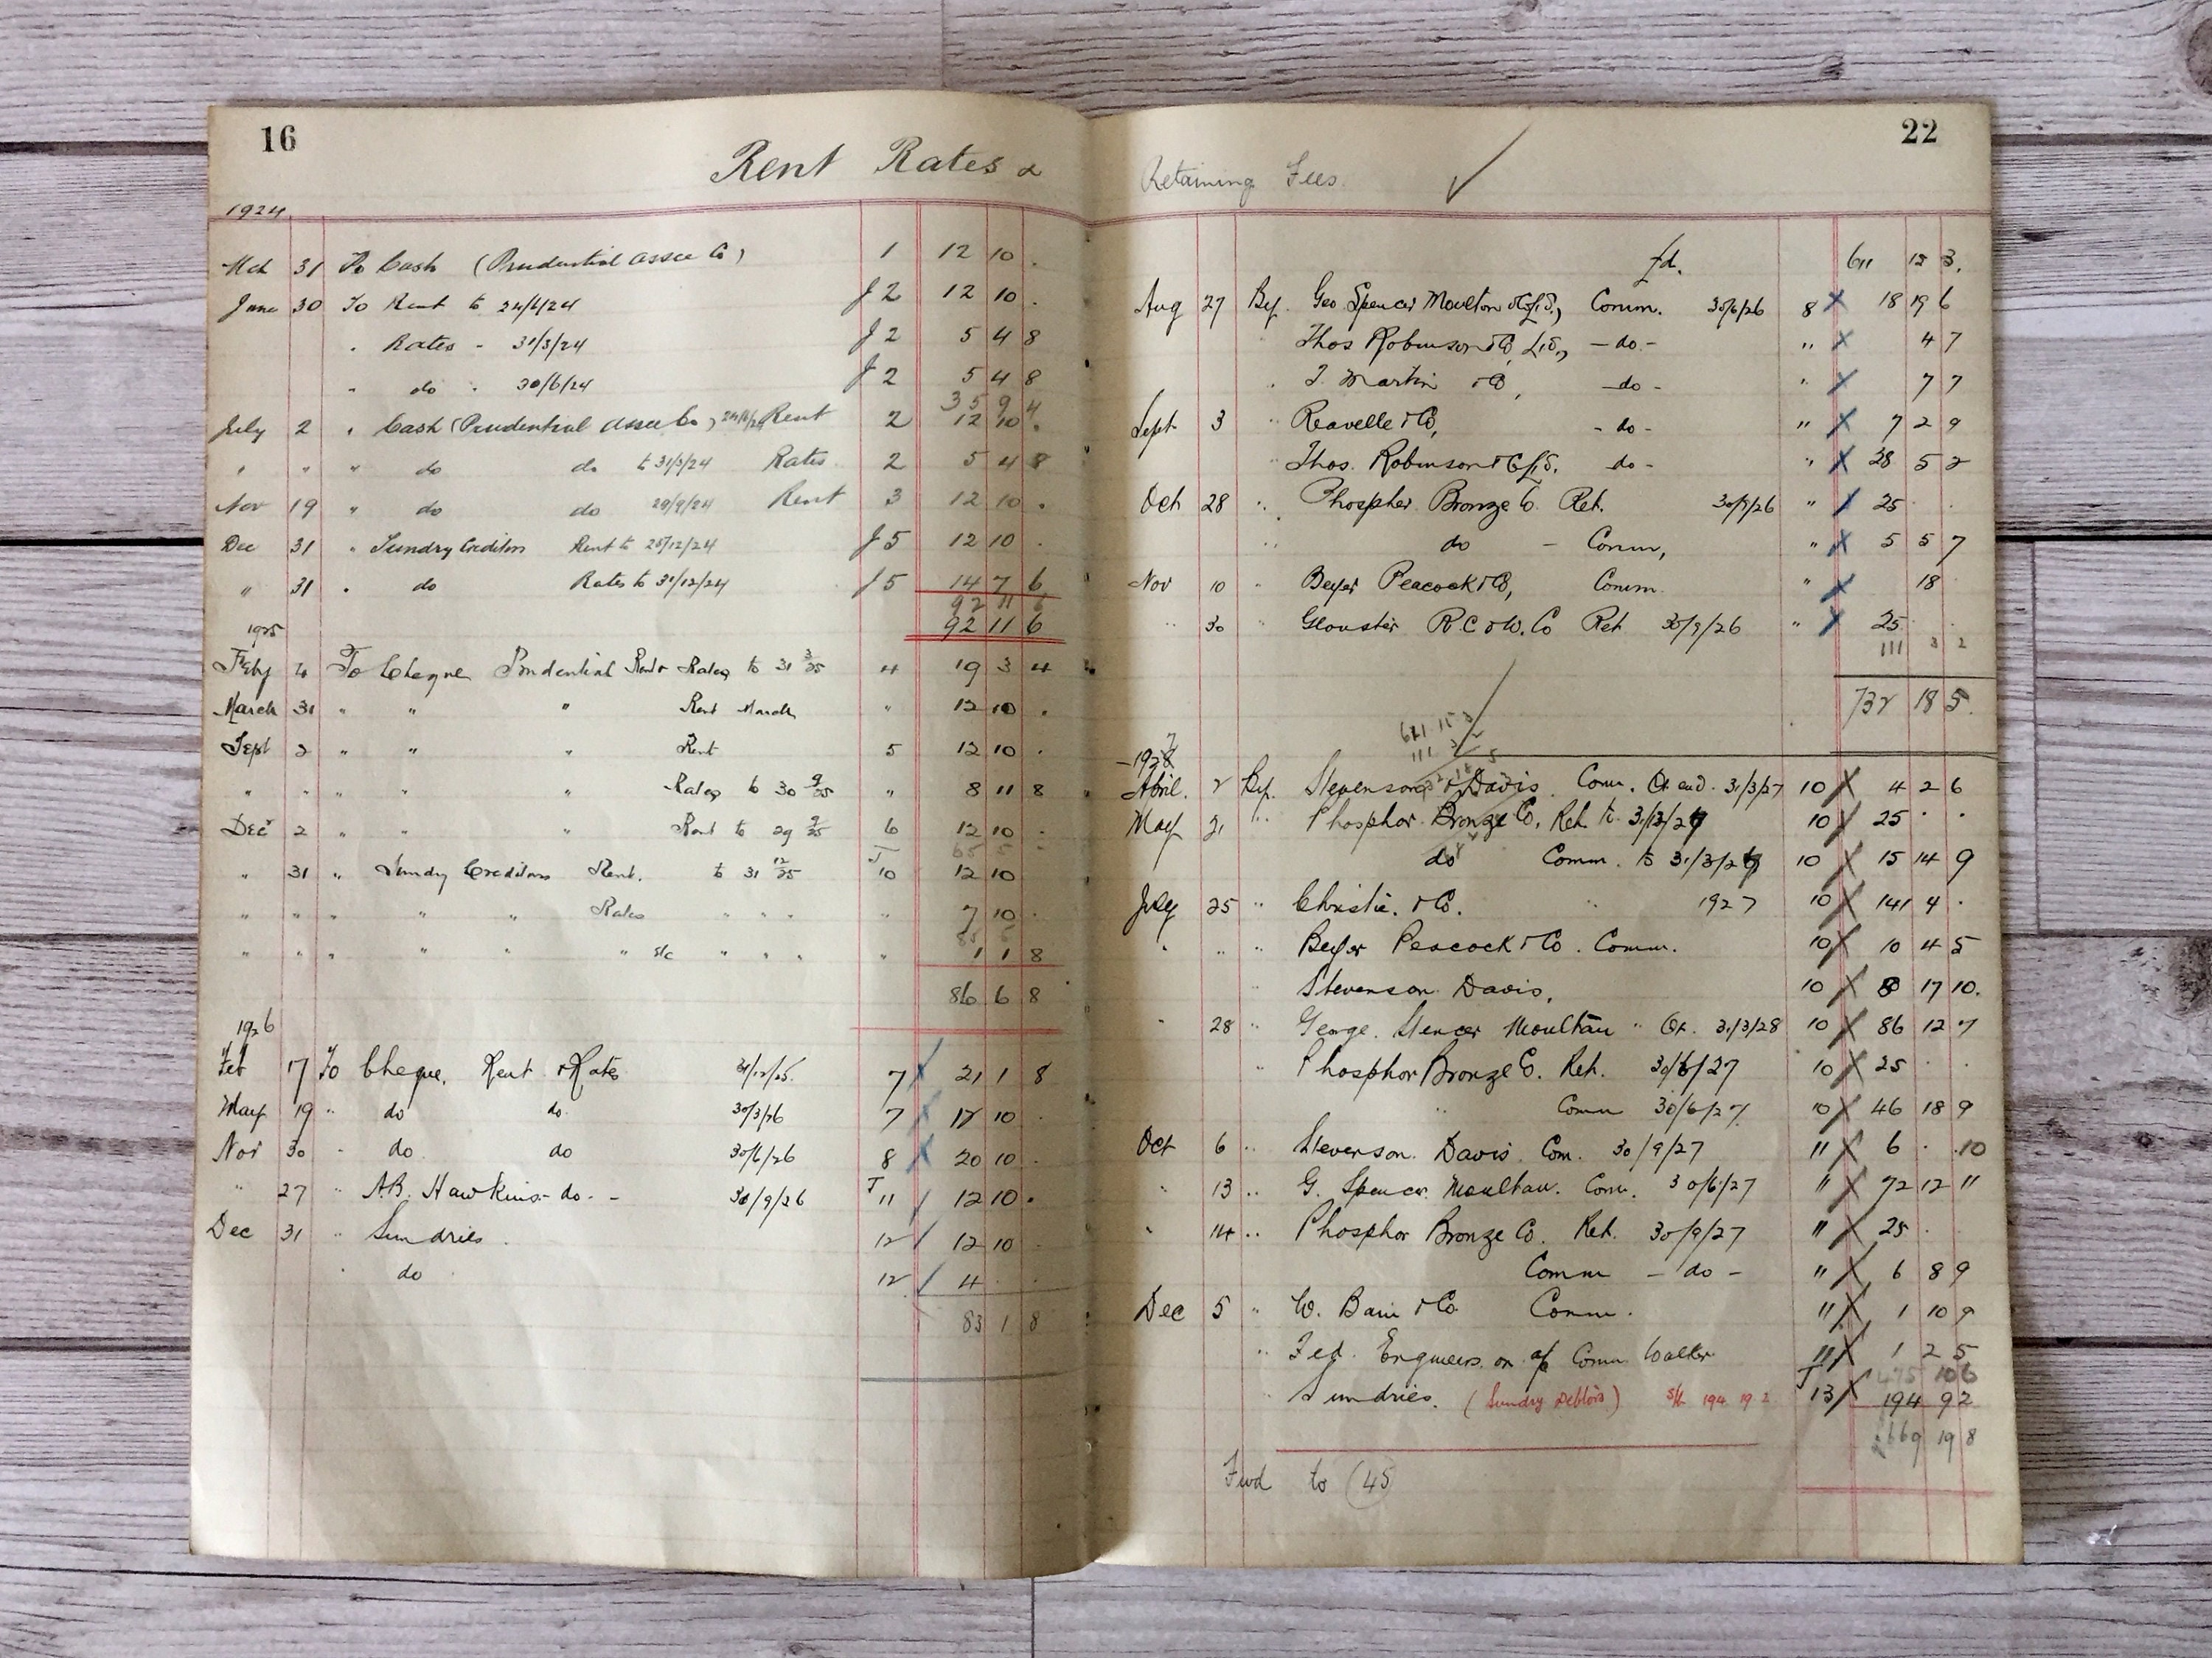 16
Rent Rates &
1924
Mch 31 To Cash (Prudential Assce Co) 1 12 10 .
June 30 To Rent to 24/6/24 J 2 12 10 .
" Rates - 31/3/24 J 2 5 4 8
" do " 30/6/24 J 2 5 4 8
35 9 4
July 2 " Cash (Prudential Assce Co) 24/6/24 Rent 2 12 10 .
" " " do do to 31/3/24 Rates 2 5 4 8
Nov 19 " do do 29/9/24 Rent 3 12 10 .
Dec 31 " Sundry Creditors Rent to 25/12/24 J 5 12 10 .
" 31 " do Rates to 31/12/24 J 5 14 7 6
92 11 6
92 11 6
1925
Feby 4 To Cheque Prudential Rent & Rates to 31 3/25 4 19 3 4
March 31 " " " Rent March " 12 10 .
Sept 2 " " " Rent 5 12 10 .
" " " " " Rates to 30 9/25 " 8 11 8
Dec 2 " " " Rent to 29 9/25 6 12 10 .
65 5 -
" 31 " Sundry Creditors Rent. to 31 12/25 J 10 12 10
" " " " " Rates " " " " 7 10 .
85 5
" " " " " " s/c " " " " 1 1 8
86 6 8
1926
Feb 17 To Cheque, Rent & Rates 31/12/25. 7 21 1 8
May 19 " do do 30/3/26 7 12 10 .
Nov 30 " do do 30/6/26 8 20 10 .
" 27 " A.B. Hawkins - do - - 30/9/26 J 11 12 10 .
Dec 31 " Sundries 12 12 10 .
" do 12 4 . .
83 1 8
22
Retaining Fees.
fd. 611 15 3.
Aug 27 By. Geo Spencer Moulton & Co Ltd., Comm. 30/6/26 8 18 19 6
Thos Robinson & Co, Ltd., - do - " 4 7
" J. Martin & Co, - do - " 7 7
Sept 3 " Reavelle & Co, - do - " 7 2 9
" Thos. Robinson & Co Ltd. do - " 28 5 2
Oct 28 " Phospher Bronze Co Ret. 30/9/26 " 25 . .
" do - Comm, " 5 5 7
Nov 10 " Beyer Peacock & Co, Comm. " 18 .
" 30 " Glouster R.C & W. Co Ret 30/9/26 " 25 .
111 3 2
732 18 5.
611 15 3
111 3 2
1927
April. 2 By. Stevenson & Davis. Comm. 31/3/27 10 4 2 6
May 21 " Phosphor Bronze Co, Ret. to 31/3/27 10 25 . .
do Comm. to 31/3/27 10 15 14 9
July 25 " Christie. & Co. " 1927 10 141 4 .
" " " Beyer Peacock & Co. Comm. 10 10 4 5
Stevenson Davis, 10 8 17 10.
" 28 " George. Spencer Moultan " Qr. 31/3/28 10 86 12 7
" Phosphor Bronze Co. Ret. 30/6/27 10 25 . .
" Comm 30/6/27. 10 46 18 9
Oct 6 " Stevenson. Davis. Com. 30/9/27 11 6 . 10
" 13 " G. Spencer. Moultan. Com. 30/6/27 11 72 12 11
" 14 " Phosphor Bronze Co. Ret. 30/9/27 11 25 .
Comm - do - 11 6 8 9
Dec 5 " W. Bain & Co. Comm. 11 1 10 9
" Fed. Engineers. on a/c Comm Walter 11 1 2 5
475 10 6
" Sundries. (Sundry Debtors) 194 19 2 J 13 194 9 2
669 19 8
Fwd to (45)